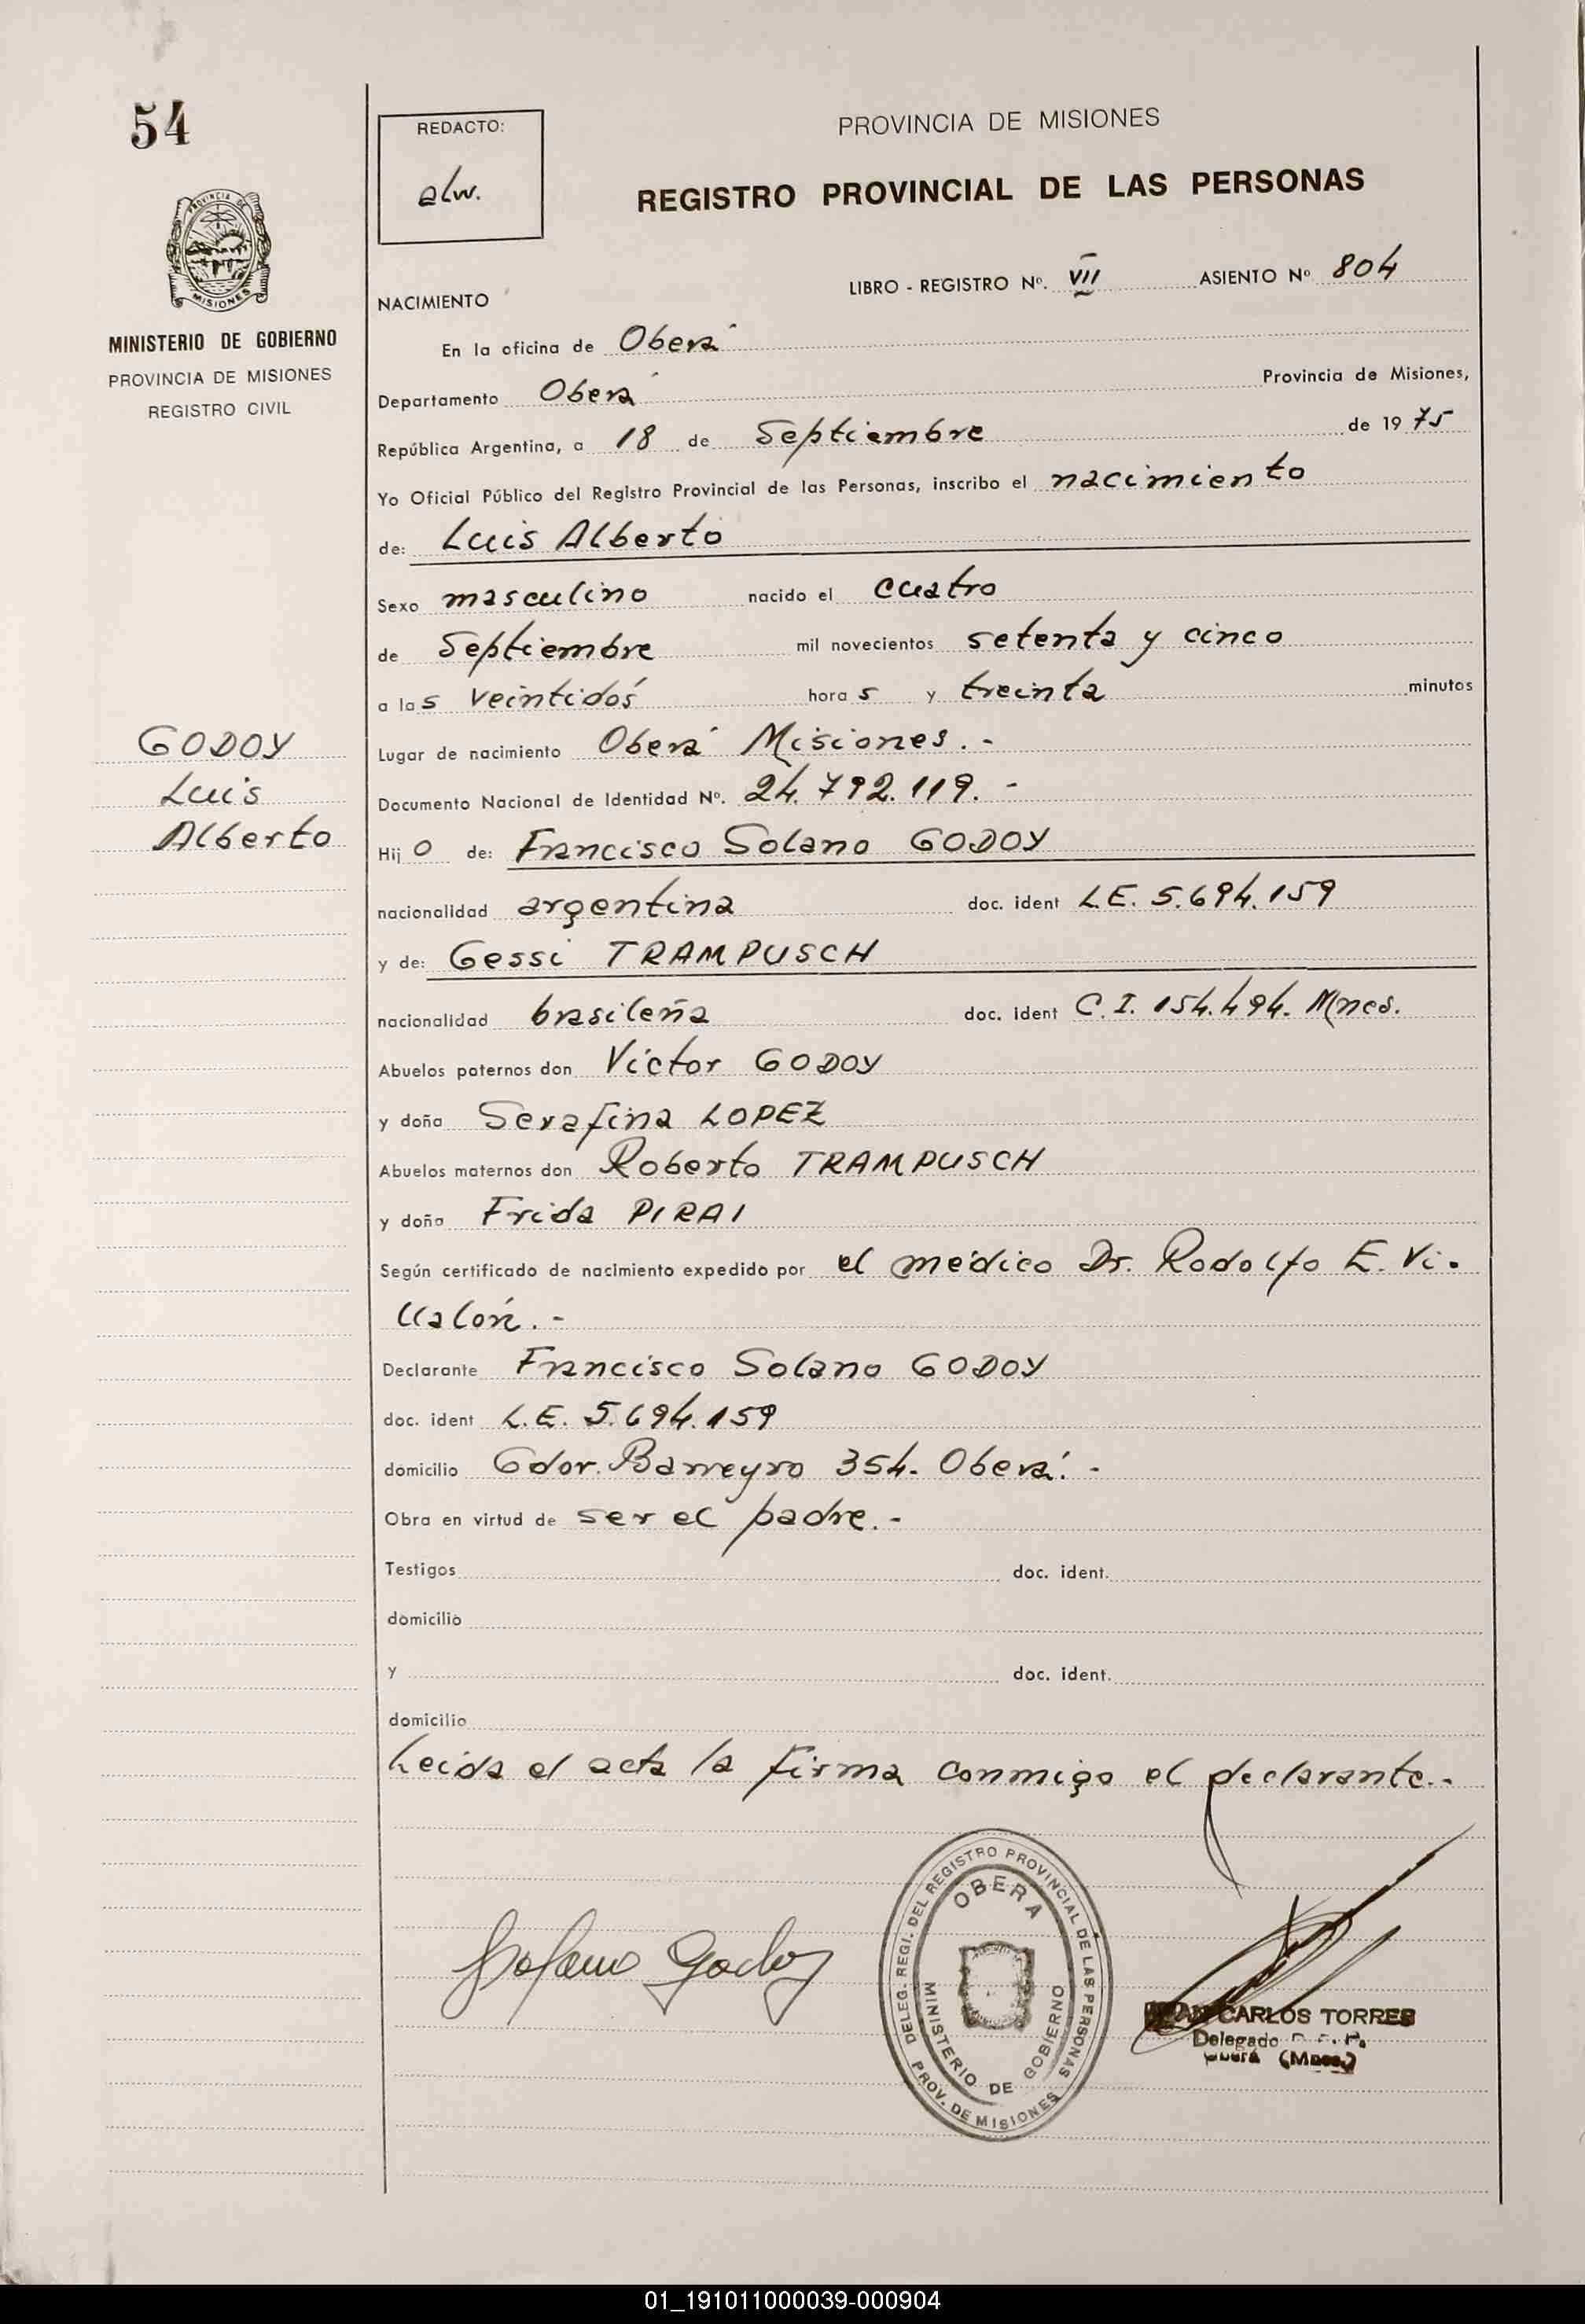 54
REDACTO:
alw.
PROVINCIA DE MISIONES
REGISTRO PROVINCIAL DE LAS PERSONAS
PROVINCIA DE
MISIONES
MINISTERIO DE GOBIERNO
PROVINCIA DE MISIONES
REGISTRO CIVIL
LIBRO - REGISTRO Nº. VII ASIENTO Nº 804
NACIMIENTO
En la oficina de Oberá
Departamento Oberá Provincia de Misiones,
República Argentina, a 18 de Septiembre de 1975
Yo Oficial Público del Registro Provincial de las Personas, inscribo el nacimiento
de: Luis Alberto
Sexo masculino nacido el cuatro
de Septiembre mil novecientos setenta y cinco
a las veintidós horas y treinta minutos
GODOY
Luis
Alberto
Lugar de nacimiento Oberá Misiones. -
Documento Nacional de Identidad Nº. 24.792.119. -
Hijo de: Francisco Solano GODOY
nacionalidad argentina doc. ident L.E. 5.694.159
y de: Gessi TRAMPUSCH
nacionalidad brasileña doc. ident C.I. 154.494. Mnes.
Abuelos paternos don Víctor GODOY
y doña Serafina LOPEZ
Abuelos maternos don Roberto TRAMPUSCH
y doña Frida PIRAI
Según certificado de nacimiento expedido por el médico Dr. Rodolfo E. Vi-
llalón. -
Declarante Francisco Solano GODOY
doc. ident L.E. 5.694.159
domicilio Gdor. Barreyro 354. Oberá. -
Obra en virtud de ser el padre. -
Testigos doc. ident.
domicilio
y doc. ident.
domicilio
Leída el acta la firma conmigo el declarante. -
Solano Godoy
DELEG. REGI. DEL REGISTRO PROVINCIAL DE LAS PERSONAS
OBERA
MINISTERIO DE GOBIERNO
PROV. DE MISIONES
CARLOS TORRES
Delegado
Oberá (Mnes.)
01_191011000039-000904